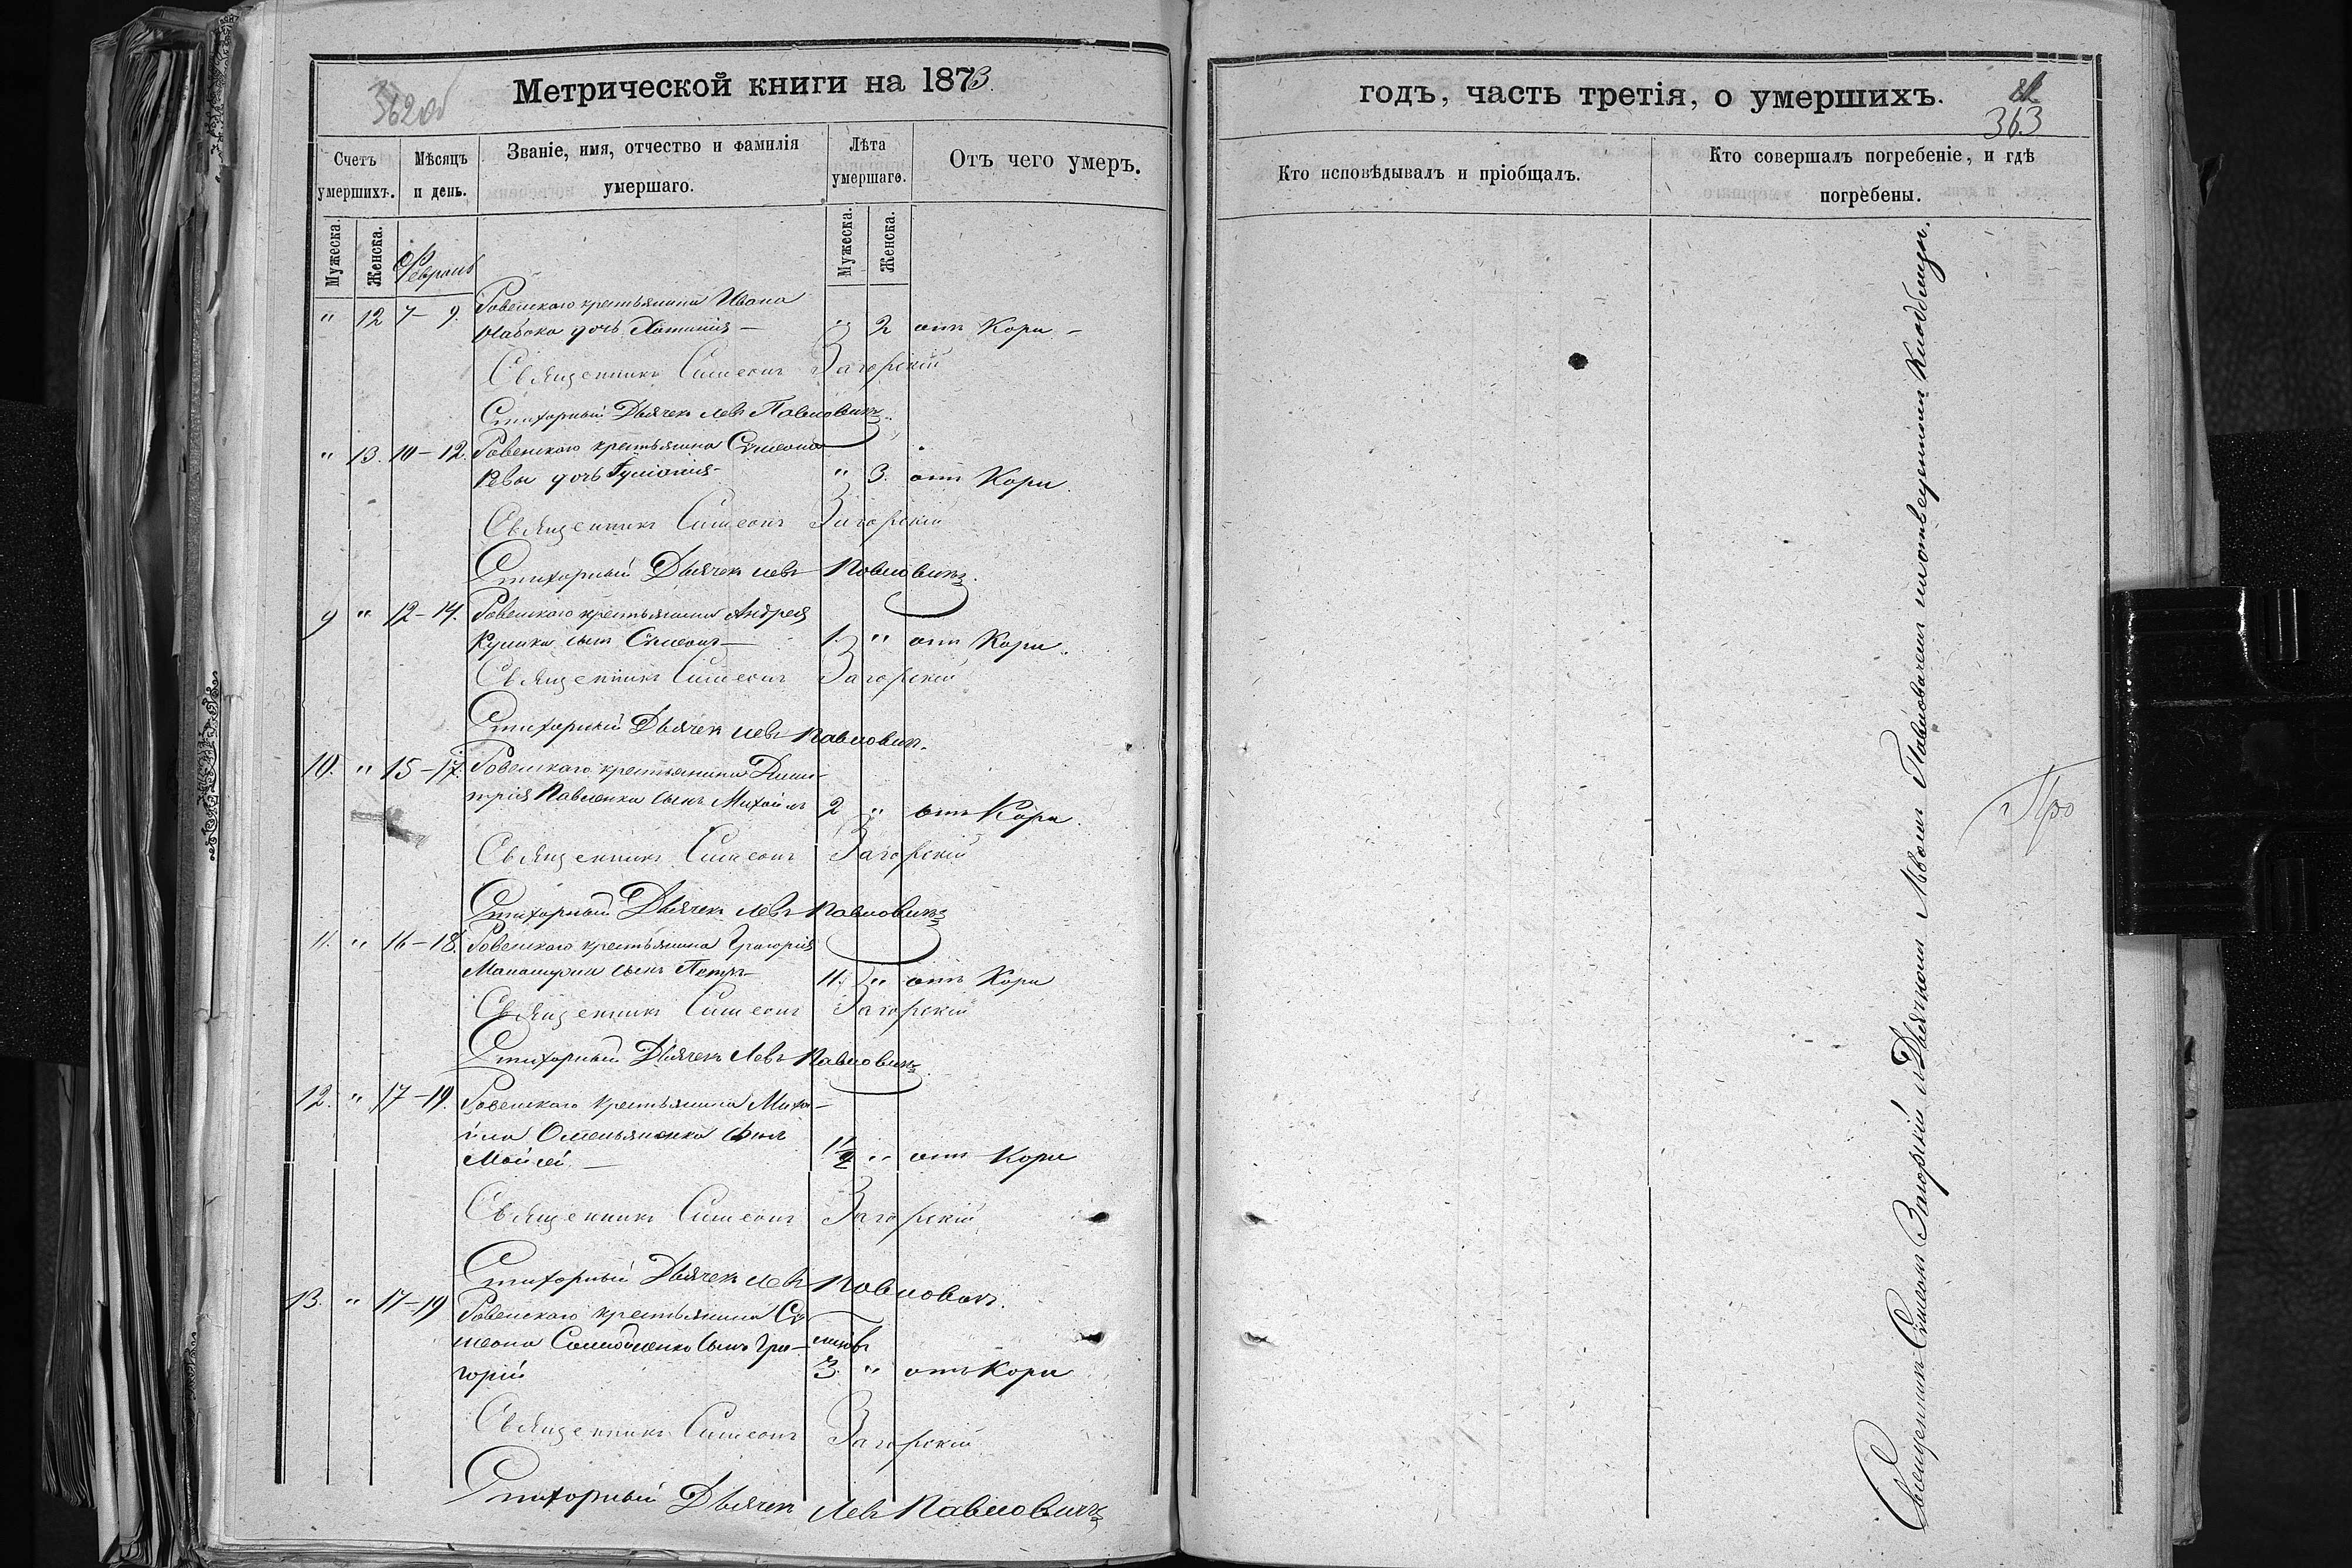 362 об
Метрической книги на 1873.
Счетъ умершихъ.
Мѣсяцъ и день.
Званіе, имя, отчество и фамилія умершаго.
Лѣта умершаго.
Отъ чего умеръ.
Мужеска.
Женска.
Февраль
Мужеска.
Женска.
" 12 7 – 9. Ровенскаго крестьянина Ивана
дочь " 2 отъ Кори –
Священникъ Симеонъ Загорскій
Стихорный Дьячекъ Левъ Павловичъ
" 13. 10 – 12. Ровенскаго крестьянина Сѵмеона
Ревы дочь Іуліанія – " 3. отъ Кори.
Священникъ Симеонъ Загорскій
Стихорный Дьячекъ Левъ Павловичъ.
9 " 12 – 14. Ровенскаго крестьянина Андрея
сынъ Сѵмеонъ – 1. " отъ Кори.
Священникъ Симеонъ Загорскій
Стихорный Дьячекъ Левъ Павловичъ.
10. " 15 – 17. Ровенскаго крестьянина Дими-
трія Павленка сынъ Михаилъ 2 " отъ Кори.
Священникъ Симеонъ Загорскій
Стихорный Дьячекъ Левъ Павловичъ
11. " 16 – 18. Ровенскаго крестьянина Григорія
сынъ Петръ – 11. " отъ Кори
Священникъ Симеонъ Загорскій
Стихорный Дьячекъ Левъ Павловичъ
12. " 17 – 19. Ровенскаго крестьянина Миха-
ила Омельяненка сынъ
Моисей – 1½ " отъ Кори
Священникъ Симеонъ Загорскій
Стихорный Дьячекъ Левъ Павловичъ.
13. " 17 – 19 Ровенскаго крестьянина Сѵ
меона сынъ Гри-
горій 3. " отъ Кори
Священникъ Симеонъ Загорскій
Стихорный Дьячекъ Левъ Павловичъ
годъ, часть третія, о умершихъ.
363
Кто исповѣдывалъ и пріобщалъ.
Кто совершалъ погребеніе, и гдѣ погребены.
Священникъ Сѵмеонъ Загорскій съ Дьячкомъ Львомъ Павловичемъ на отведенномъ Кладбищи.